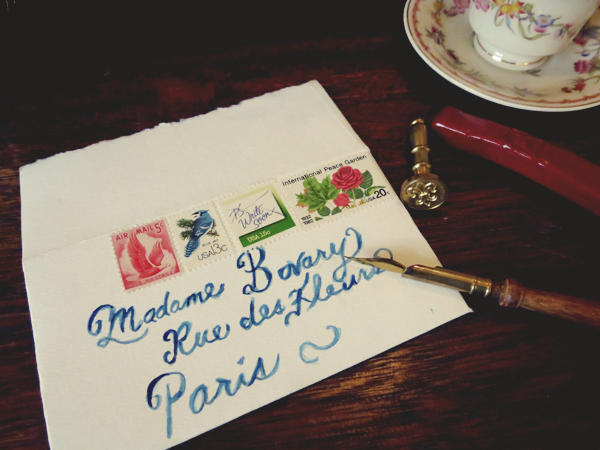 AIR MAIL 5¢
USA 13c
P.S. Write Soon
USA 15c
International Peace Garden
1932
1982
USA 20c
Madame Bovary
Rue des Fleurs
Paris